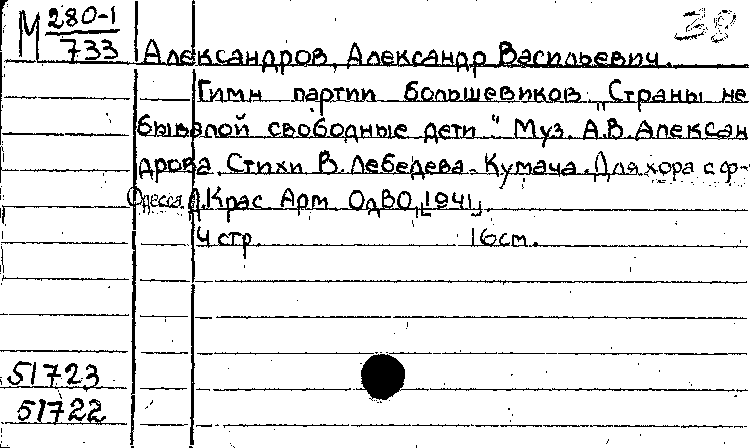 М 280-1
733
38
Александров, Александр Васильевич.
Гимн партии большевиков „Страны не
бывалой свободные дети" Муз. А.В. Алексан
дрова. Стихи В. Лебедева-Кумача. Для хора с ф-
Одесса, Д. Крас Арм ОдВО, [1941].
4 стр. 16см.
51723
51722